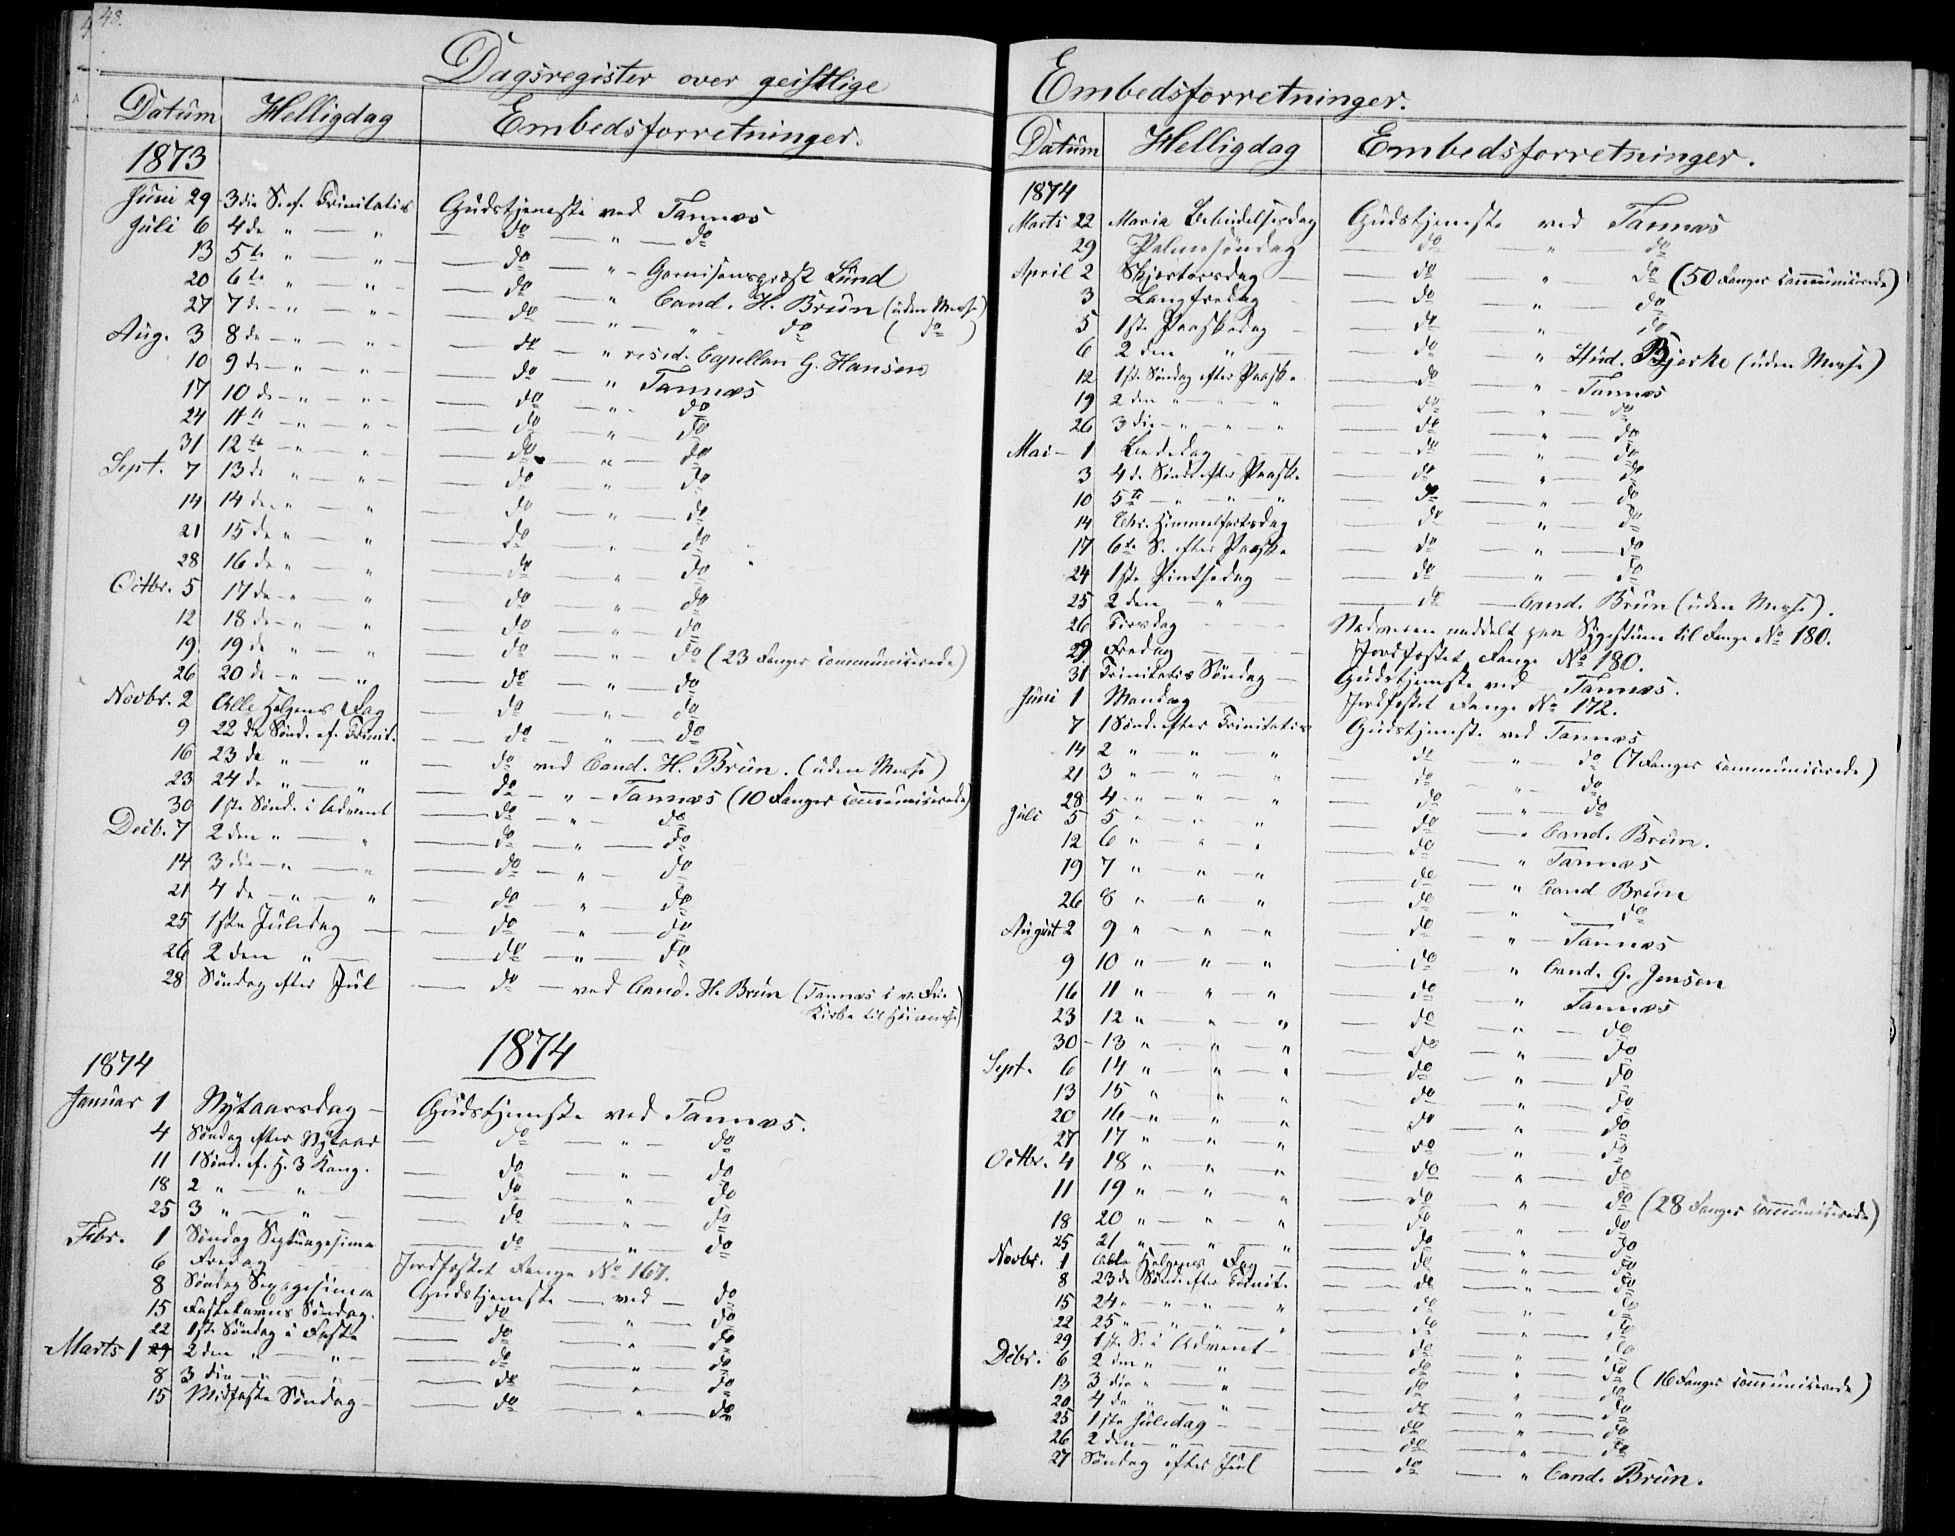 48.
Dagsregister over geistlige
Datum Helligdag Embedsforretninger.
1873
Juni 29 3die S. ef. Trinitatis Gudstjeneste ved Tannæs
Juli 6 4de " — " — do — " — do
13 5te " — " — do — " — Garnisonspræst Lund
20 6te " — " — do — " Cand. H. Brun (uden Messe)
27 7de — " — " — do — " — do ( do )
Aug. 3 8de — " — " — do — " resid. Capellan G. Hansen
10 9de — " — " — do — " Tannæs
17 10de — " — " — do — " — do
24 11te — " — " — do — " — do
31 12te — " — " — do — " — do
Sept. 7 13de " — " — do — " — do
14 14de — " — " — do — " — do
21 15de " — " — do — " — do
28 16de " — " — do — " — do
Octbr. 5 17de — " — " — do — " — do
12 18de — " — " — do — " — do
19 19de " — " — do — " — do (23 Fanger communicerede)
26 20de — " — " — do — " — do
Novbr. 2 Alle Helgens Dag — do — " — do
9 22de Sønd. ef. Trinit. — do — " — do
16 23de " — " — do ved Cand. H. Brun. (uden Messe)
23 24de " — " — do — " — Tannæs (10 Fanger communicerede)
30 1ste Sønd. i Advent — do — " — do
Decb. 7 2den " — " — do — " — do
14 3die — " — " — do — " — do
21 4de — " — " — do — " — do
25 1ste Juledag — do — " — do
26 2den " — do — " — do
28 Søndag efter Jul — do — ved Cand. H. Brun (Tannæs i v. Frue
Kirke til Høimesse)
1874 1874
Januar 1 Nytaarsdag — Gudstjeneste ved Tannæs.
4 Søndag efter Nytaar — do — " — do
11 1 Sønd. ef. H. 3 Kong. — do — " — do
18 2 " — " — do — " — do
25 3 " — " — do — " — do
Febr. 1 Søndag Septuagesima — do — " — do
6 Fredag — Jordfæstet Fange No 167.
8 Søndag Sexagesima Gudstjeneste — ved — do
15 Fastelavns Søndag. — do — " — do
22 1ste Søndag i Faste — do — " — do
Marts 1 29 2den " — " — do — " — do
8 3die — " — do — " — do
15 Midfaste Søndag — do — " — do
Embedsforretninger.
Datum Helligdag Embedsforretninger.
1874
Marts 22 Maria Bebudelsesdag Gudstjeneste ved Tannæs
29 Palmesøndag — do " do
April 2 Skjertorsdag — do " do (50 Fanger communicerede)
3 Langfredag — do — " — do
5 1ste Paaskedag — do " do
6 2den " — do — " Stud. Bjerke (uden Messe)
12 1ste Søndag efter Paaske — do — " — Tannæs
19 2den " — " — do — " — do
26 3die — " — " — do — " — do
Mai — 1 Bededag — do — " — do
3 4de Sønd. efter Paaske — do — " — do
10 5te — " — " — do — " — do
14 Chr. Himmelfartsdag — do — " — do
17 6te S. efter Paaske — do — " — do
24 1ste Pintsedag — do — " — do
25 2den — " — do — Cand. Brun (uden Messe).
26 Tirsdag — Nadveren meddelt paa Sygestuen til Fange No 180.
29 Fredag — Jordfæstet Fange No 180.
31 Trinitatis Søndag — Gudstjeneste ved Tannæs.
Juni 1 Mandag — Jordfæstet Fange No 172.
7 1 Sønd. efter Trinitatis Gudstjeneste ved Tannæs
14 2 " " — " do " — do (7 Fanger communicerede)
21 3 " — " — " do — " — do
28 4 " — " — " do — " — do
Juli 5 5 " — " — " do — " Cand. Brun.
12 6 " — " — " do — " Tannæs
19 7 " — " — " do — " Cand Brun
26 8 " — " — " do — " — do
August 2 9 " — " — " do " — Tannæs
9 10 " — " — " do " Cand. G. Jensen
16 11 " — " — " do " Tannæs
23 12 " — " — " — do — " — do
30 — 13 " — " — " — do — " — do
Sept. 6 14 " — " — " — do — " — do
13 15 " — " — " — do — " — do
20 16 — " — " — " — do — " — do
27 17 " — " — " — do — " — do
Octbr. 4 18 " — " — " — do — " — do
11 19 " — " — " — do — " — do (28 Fanger communicerede)
18 20 " — " — " — do — " — do
25 21 " — " — " — do — " — do
Novbr. 1 Alle Helgens Dag — do — " — do
8 23de Sønd. efter Trinit. — do — " — do
15 24 " — " — " — do — " — do
22 25 " — " — " — do — " — do
29 1ste S. i Advent — do — " — do
Decbr. 6 2den " — " — do — " — do (16 Fanger communicerede)
13 3die " — " — do — " — do
20 4de " — " — do — " — do
25 1ste Juledag — do — " — do
26 2den — " — do — " — do
27 Søndag efter Jul — do — " Cand. Brun.